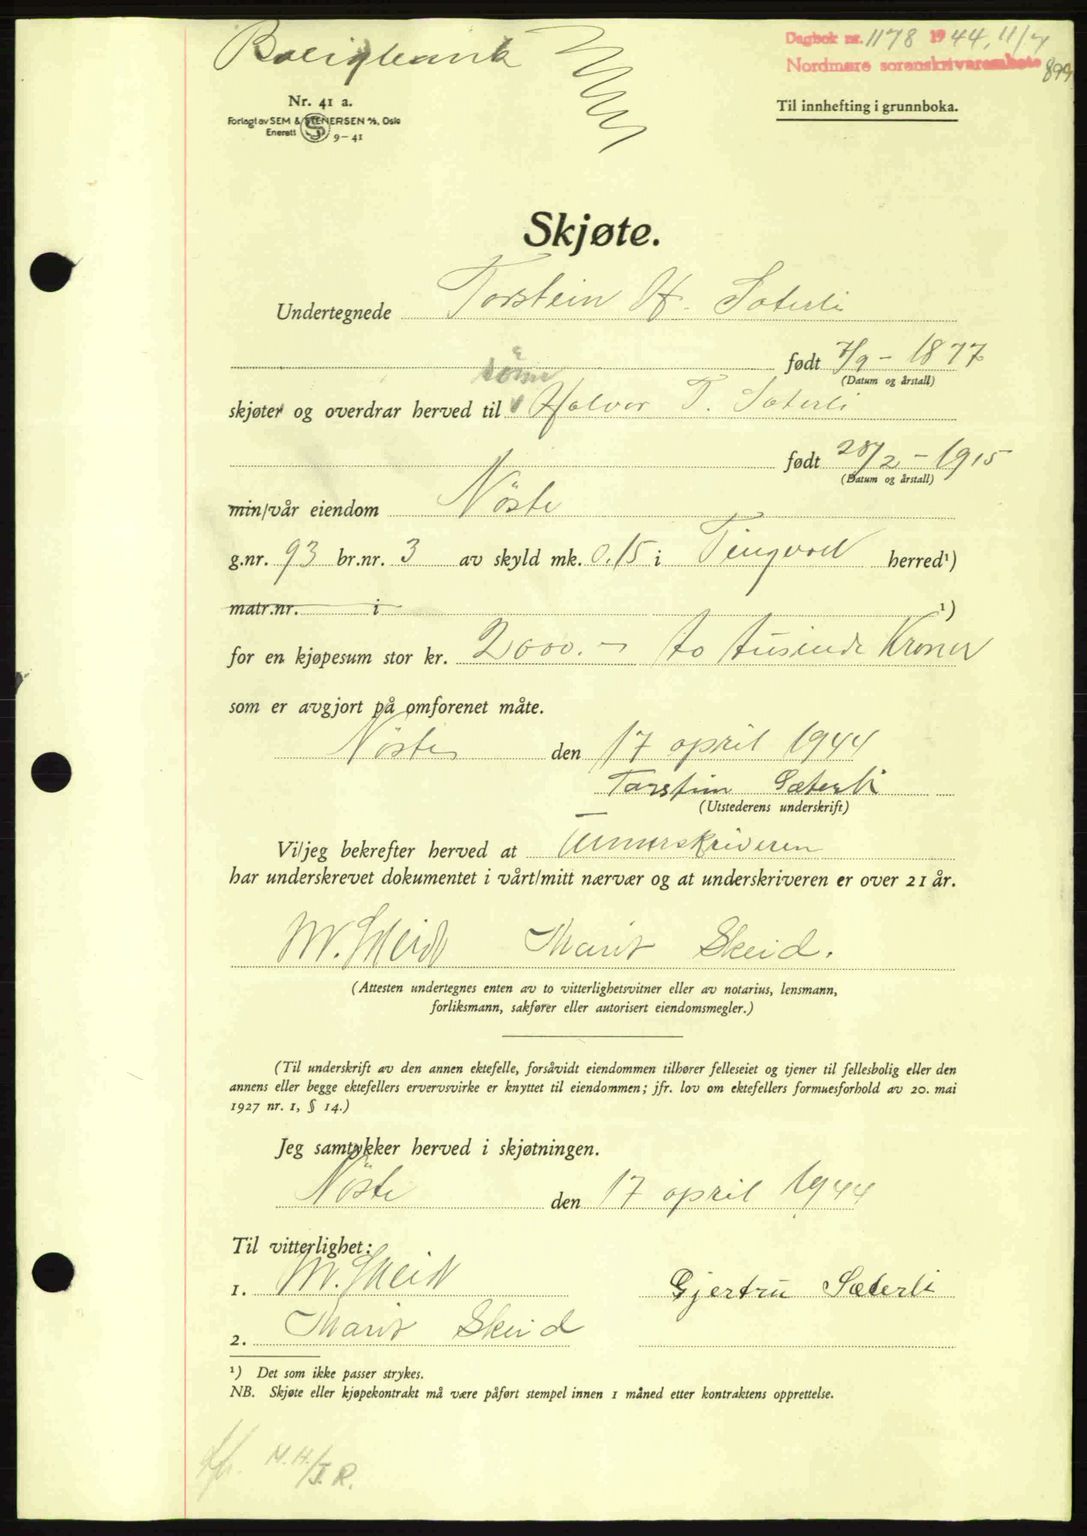 Boligbank
Dagbok nr. 1178 1944, 11/7
Nordmøre sorenskriverembete 899
Nr. 41 a.
Forlagt av SEM & STENERSEN A/S, Oslo
Enerett 9-41
Til innhefting i grunnboka.
Skjøte.
Undertegnede Torstein H. Sæterli
født 7/9 - 1877
(Datum og årstall)
sönn
skjøter og overdrar herved til Halvor T. Sæterli
født 28/2 - 1915
(Datum og årstall)
min/vår eiendom Nöste
g.nr. 93 br.nr. 3 av skyld mk. 0.15 i Tingvoll herred¹)
matr.nr. i ¹)
for en kjøpesum stor kr. 2000.- to tusinde Kroner
som er avgjort på omforenet måte.
Nöste den 17 april 1944
Torstein Sæterli
(Utstederens underskrift)
Vi/jeg bekrefter herved at Unnerskriveren
har underskrevet dokumentet i vårt/mitt nærvær og at underskriveren er over 21 år.
M. Skeid Marit Skeid.
(Attesten undertegnes enten av to vitterlighetsvitner eller av notarius, lensmann,
forliksmann, sakfører eller autorisert eiendomsmegler.)
(Til underskrift av den annen ektefelle, forsåvidt eiendommen tilhører felleseiet og tjener til fellesbolig eller den
annens eller begge ektefellers ervervsvirke er knyttet til eiendommen; jfr. lov om ektefellers formuesforhold av 20. mai
1927 nr. 1, § 14.)
Jeg samtykker herved i skjøtningen.
Nöste den 17 april 1944
Til vitterlighet:
1. M. Skeid Gjertru Sæterli
2. Marit Skeid
¹) Det som ikke passer strykes.
NB. Skjøte eller kjøpekontrakt må være påført stempel innen 1 måned etter kontraktens opprettelse.
M.H./J.R.